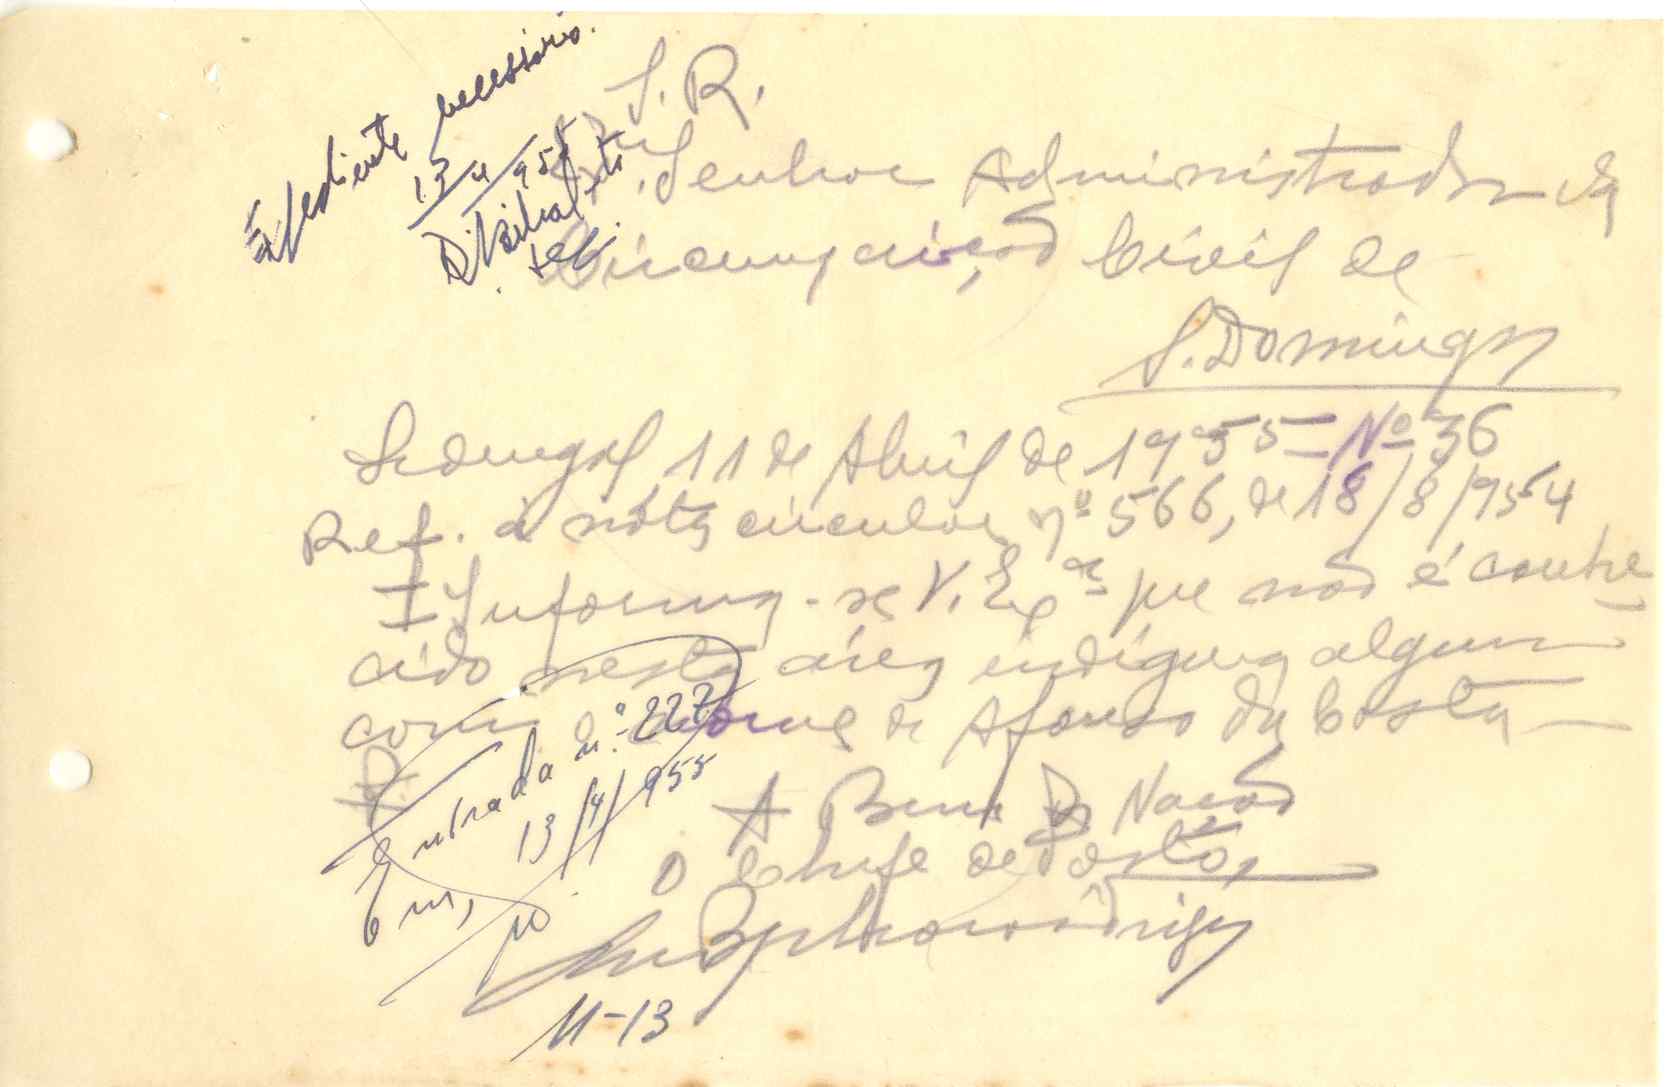 Expediente necessário.
13/4/955
S. R.
Senhor Administrador da
Circunscrição Civil de
S. Domingos
Sedengal 11 de Abril de 1955 = Nº 36
Ref. à nóta circular nº 566, de 18/8/954
I Informa-se V. Exª que não é conhe
cido nesta área indígena algum
com o nome de Afonso da Costa
A Bem da Nação
O Chefe de Posto,
Entrada n.º 227
13/4/955
Em,
11-13